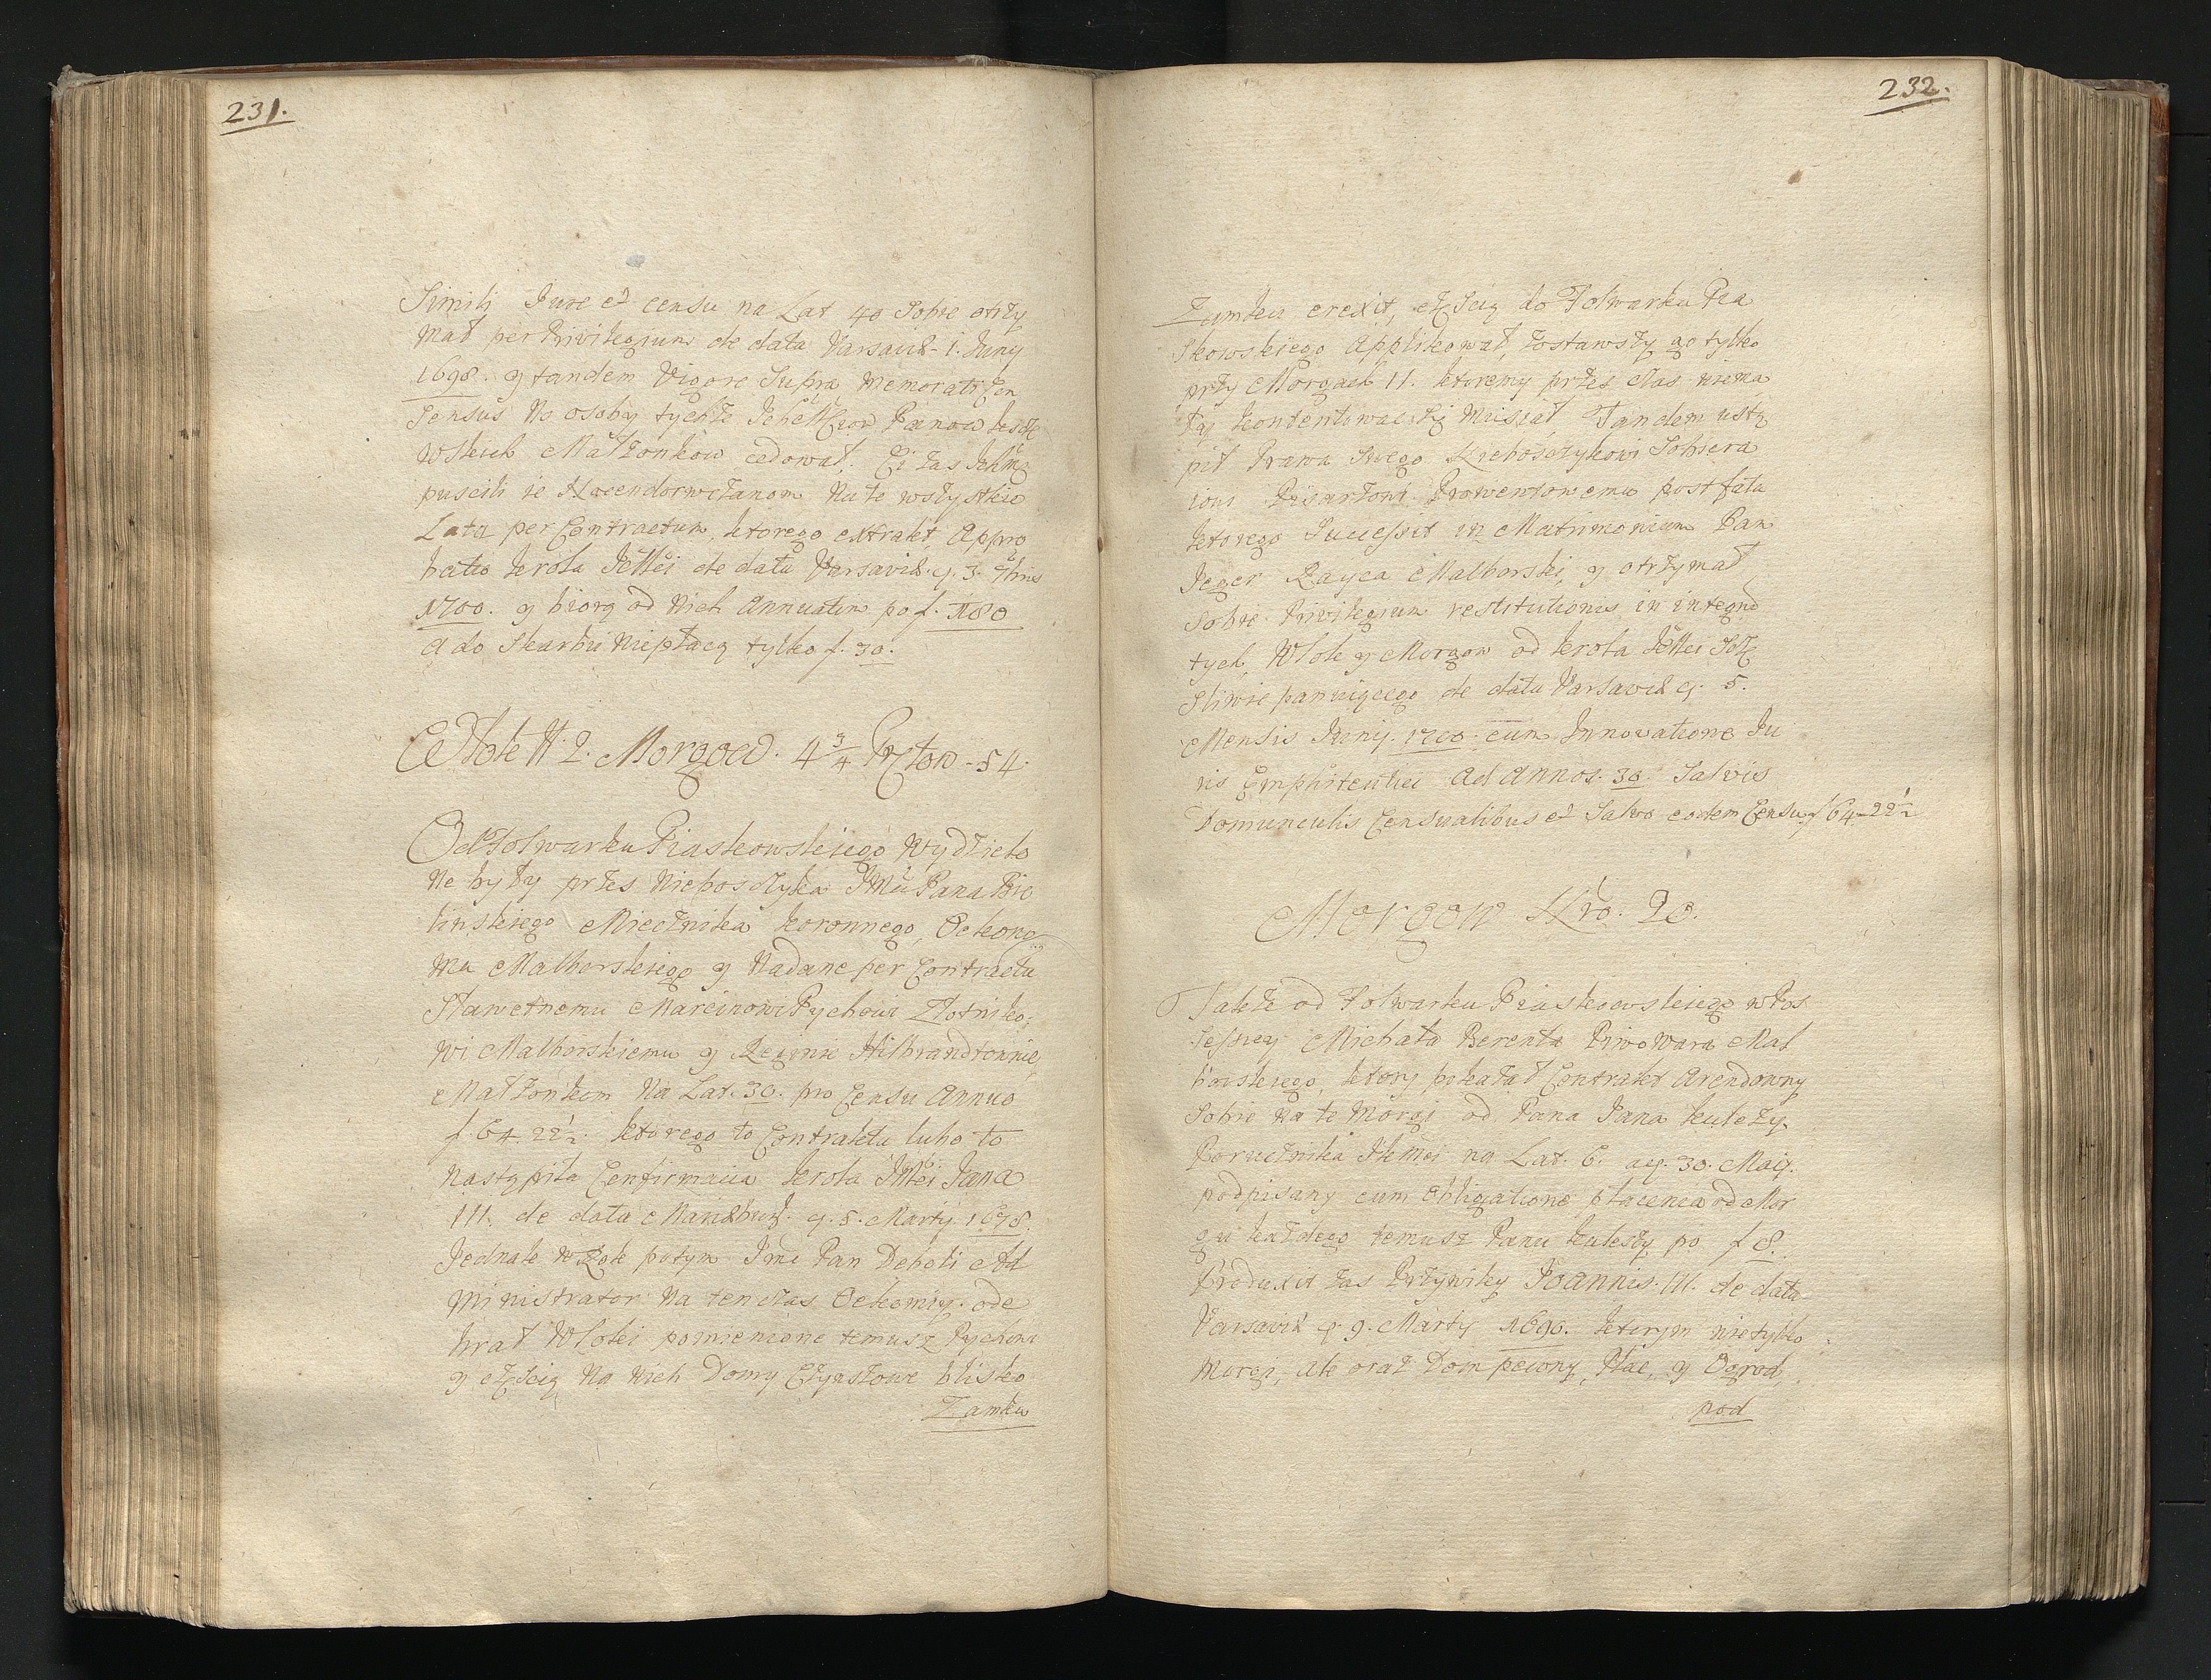 231.
Simili Jure et censu na Lat 40 Sobie otrzy
mał per Privilegium de data Varsaviæ 1. Juny
1698. y tandem Vigore Supra memorati Con
sensus na osoby tychże Panow
wskich Małżonkow cedował. Ci zas
puscili ie Nasendorwczanom Na te wszystkie
Lata per Contractum, ktorego extrakt, Appro
batio Krola JMci de data Varsaviæ. q. 3. 7bris
1700. y biorą od nich Annuatim po f. 180
a do Skarbu niepłacą tylko f. 30.
Włok N. 2. Morgow. 4 3/4 Prętow - 54.
Od Folwarku Piaskowskiego Wydzielo
ne były przes Nieboszczyka JMci Pana Bie
linskiego Miecznika koronnego, Oekono
ma Malborskiego y Nadane per Contractu
Sławetnemu Marcinowi Rychowi Złotniko,
wi Malborskiemu y Reginie Hilbrandtonnie
Małżonkom Na Lat. 30. pro Censu Annuo
f. 64. 22 1/2. ktorego to Contraktu lubo to
nastąpiła Confirmacia krola JMci Jana
III. de data Mariæburg. q. 8. Marty 1678.
Jednak w Rok potym Jmć Pan Deboli Ad
ministrator Na ten czas Oekomiy. ode
brał Włoki pomienione temusz Rychowi
y częscią Na nich Domy Czynszowe blisko
Zamku
232.
Zamku erexit, częscią do Folwarku Pia
skowskiego Applikował, zostawszy go tylko
przy Morgach 11. ktoremy przes czas niema
ły kontentowac się Musiał. Tandem ustą
pił Prawa Swego Nieboszczykowi Sobiera
iowi Pisarzowi Prowentowemu post fata
ktorego Successit in Matrimonium Pan
Jeger Rayca Malborski, y otrzymał
Sobie Privilegium restitutionis in integrū
tych Włok y Morgow od krola JMci Szczę
sliwie panuiącego de data Varsaviæ q. 5.
Mensis Juny. 1700. cum Innovatione Ju
ris Emphiteutici ad Annos. 30. Salvis
Domunculis Censualibus et Salvo eodem Censu f 64-22 1/2
Morgow Nro. 20.
Także od Folwarku Piaskowskiego w Pos
sessyey Michała Berenta Piwowara Mal
borskiego, ktory pokazał Contrakt Arendowny
Sobie na te Morgi od Pana Jana kuleszy
Porucznika JkMci na Lat. 6. 30. Maij.
podpisany cum Obligatione płacenia od Mor
gu każdego temusz Panu kuleszy po f 8.
Produxit zas Przywiley Joannis. III. de data
Varsaviæ q. 9. Marty 1690. ktorym nietylko
Morgi, ale oraz Dom pewny, Plac, y Ogrod,
pod